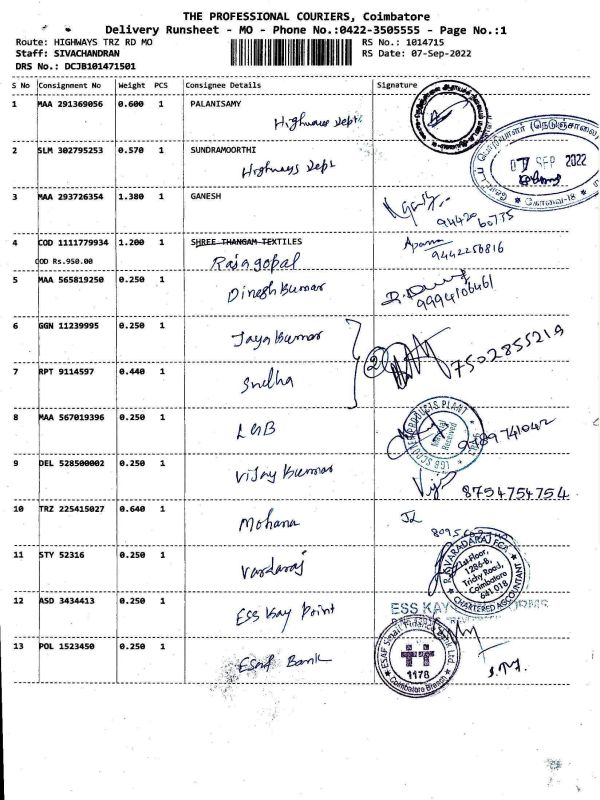 THE PROFESSIONAL COURIERS, Coimbatore
Delivery Runsheet - MO - Phone No.:0422-3505555 - Page No.:1
Route: HIGHWAYS TRZ RD MO RS No.: 1014715
Staff: SIVACHANDRAN RS Date: 07-Sep-2022
DRS No.: DCJB101471501
S No Consignment No Weight PCS Consignee Details Signature
1 MAA 291369056 0.600 1 PALANISAMY
Highways Dept
2 SLM 302795253 0.570 1 SUNDRAMOORTHI
Highways Dept
07 SEP 2022
கோவை-18
3 MAA 293726354 1.380 1 GANESH
94420 60775
4 COD 1111779934 1.200 1 SHREE THANGAM TEXTILES
Aparna
9442256816
COD Rs.950.00 Rajagopal
5 MAA 565819250 0.250 1 Dinesh Kumar
9994106461
6 GGN 11239995 0.250 1 Jaya Kumar
2 7502855219
7 RPT 9114597 0.440 1 Sudha
8 MAA 567019396 0.250 1 LGB
Material Received
9489741042
9 DEL 528500002 0.250 1 Vijay Kumar
8754754754
10 TRZ 225415027 0.640 1 Mohana
11 STY 52316 0.250 1 Vardaraj
R. VARADARAJ FCA
1st Floor,
1286-B,
Trichy Road,
Coimbatore
641 018
CHARTERED ACCOUNTANT
12 ASD 3434413 0.250 1 Ess Kay Point
ESS KAY
13 POL 1523450 0.250 1 Esaf Bank
ESAF Small Finance Bank Ltd.
1178
Coimbatore Branch